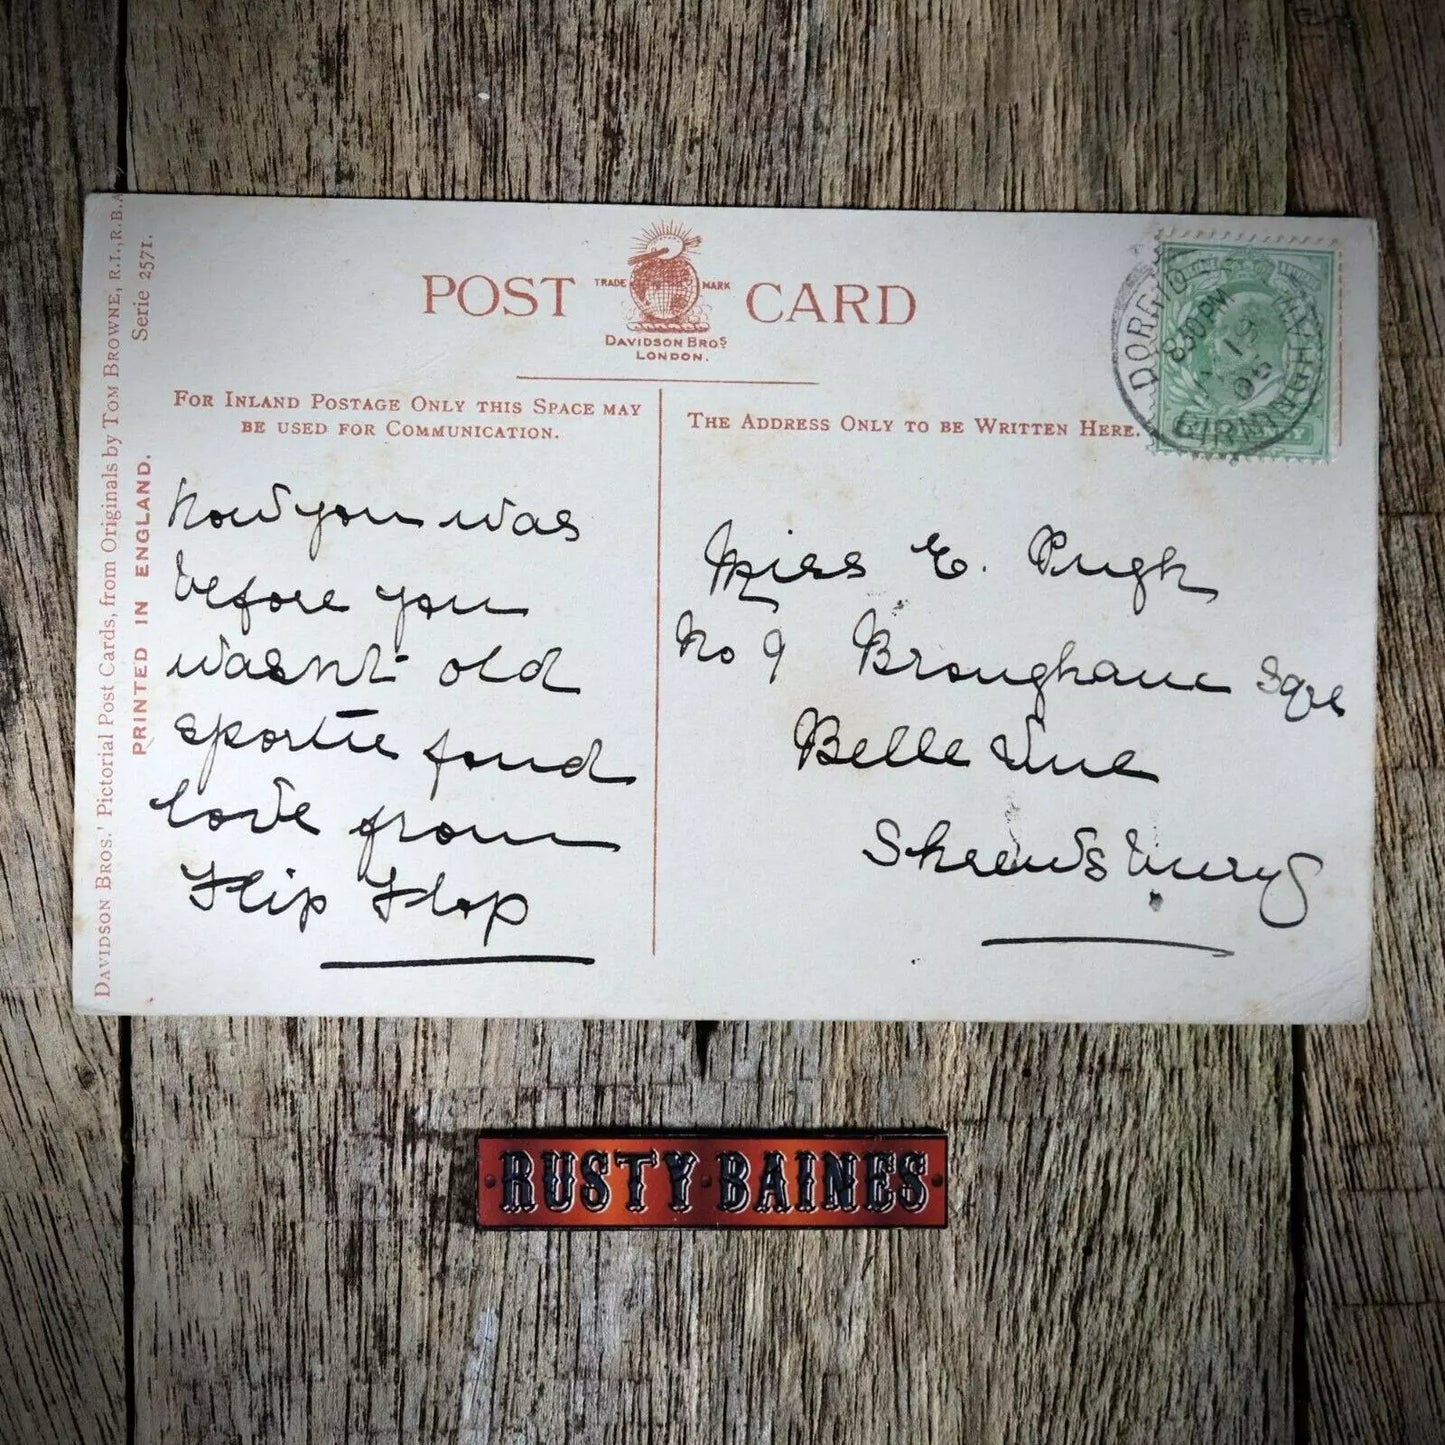 POST CARD
TRADE MARK
DAVIDSON BROS
LONDON.
FOR INLAND POSTAGE ONLY THIS SPACE MAY
BE USED FOR COMMUNICATION.
THE ADDRESS ONLY TO BE WRITTEN HERE.
8.30 PM
DAVIDSON BROS.' Pictorial Post Cards, from Originals by TOM BROWNE, R.I., R.B.A
Serie 2571.
PRINTED IN ENGLAND.
how you was
before you
wasnt old
sportie fond
love from
Flip Flop
Miss E. Pugh
No 9 Brougham Sqre
Belle Vue
Shrewsbury
RUSTY BAINES